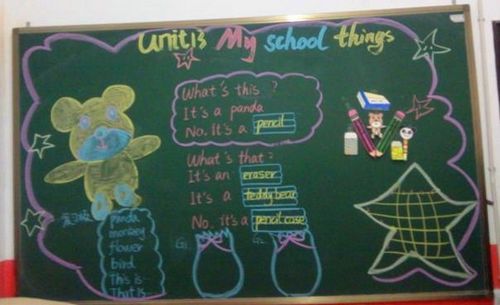 Unit 13 My school things
What's this ?
It's a panda
No. It's a pencil
What's that:
It's an eraser
It's a teddy bear
No. it's a pencil case
panda
monkey
flower
bird
This is
That is
G1
G2